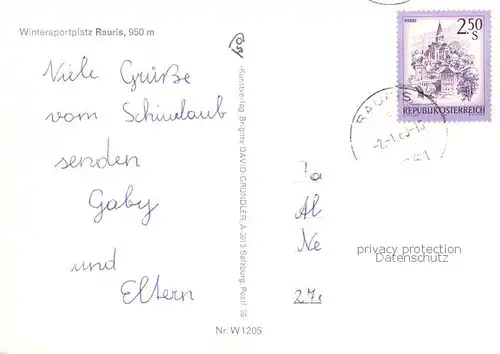 Wintersportplatz Rauris, 950 m
Viele Grüße
vom Schiurlaub
senden
Gaby
und
Eltern
Nr. W 1205
-Kunstverlag Brigitte DAVID-GRÜNDLER, A-5013 Salzburg, Postf. 36
2.50
S
MURAU
REPUBLIK ÖSTERREICH
RAURIS
Al
Ne
privacy protection
Datenschutz